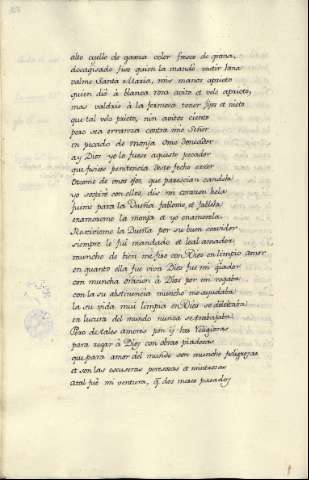 alto cuello de garza color fresco de grana,
desaguisado fizo quien la mandó vestir lana
valme Santa Maria, mis manos aprieto
quien dió à blanca rosa avito et velo aprieto,
mas valdrie à la fermosa tener fijos et nietos
que tal velo prieto, nin avitos ciento
pero sea erranza contra nro Señor
en pecado de monja ome doneador
ay Dios yo lo fuese aqueste pecador
que ficiese penitencia deste fecho error
Otome de unos ojos, que parescian candela
yo sospiré con ellos, dis mi corazon hela
fuime para la Dueña fablome, et fablela
enamorome la monja et yo enamorela
Rescivióme la Dueña por su buen servidor
siempre le fuí mandado et leal amador
muncho de bien me fizo con Dios en limpio amor
en quanto ella fue viva Dios fue mi guiador
con muncha oracion à Dios por mi rogaba
con la su abstinencia muncho me ayudaba
la su vida mui limpia en Dios se deleitaba
en locura del mundo nunca se trabajaba
Para de tales amores son las Religiosas
para rogar à Dios con obras piadosas
que para amor del mundo son muncho peligrosas
et son las escuseras perezosas et mintrosas
Atal fué mi ventura, q dos meses pasados